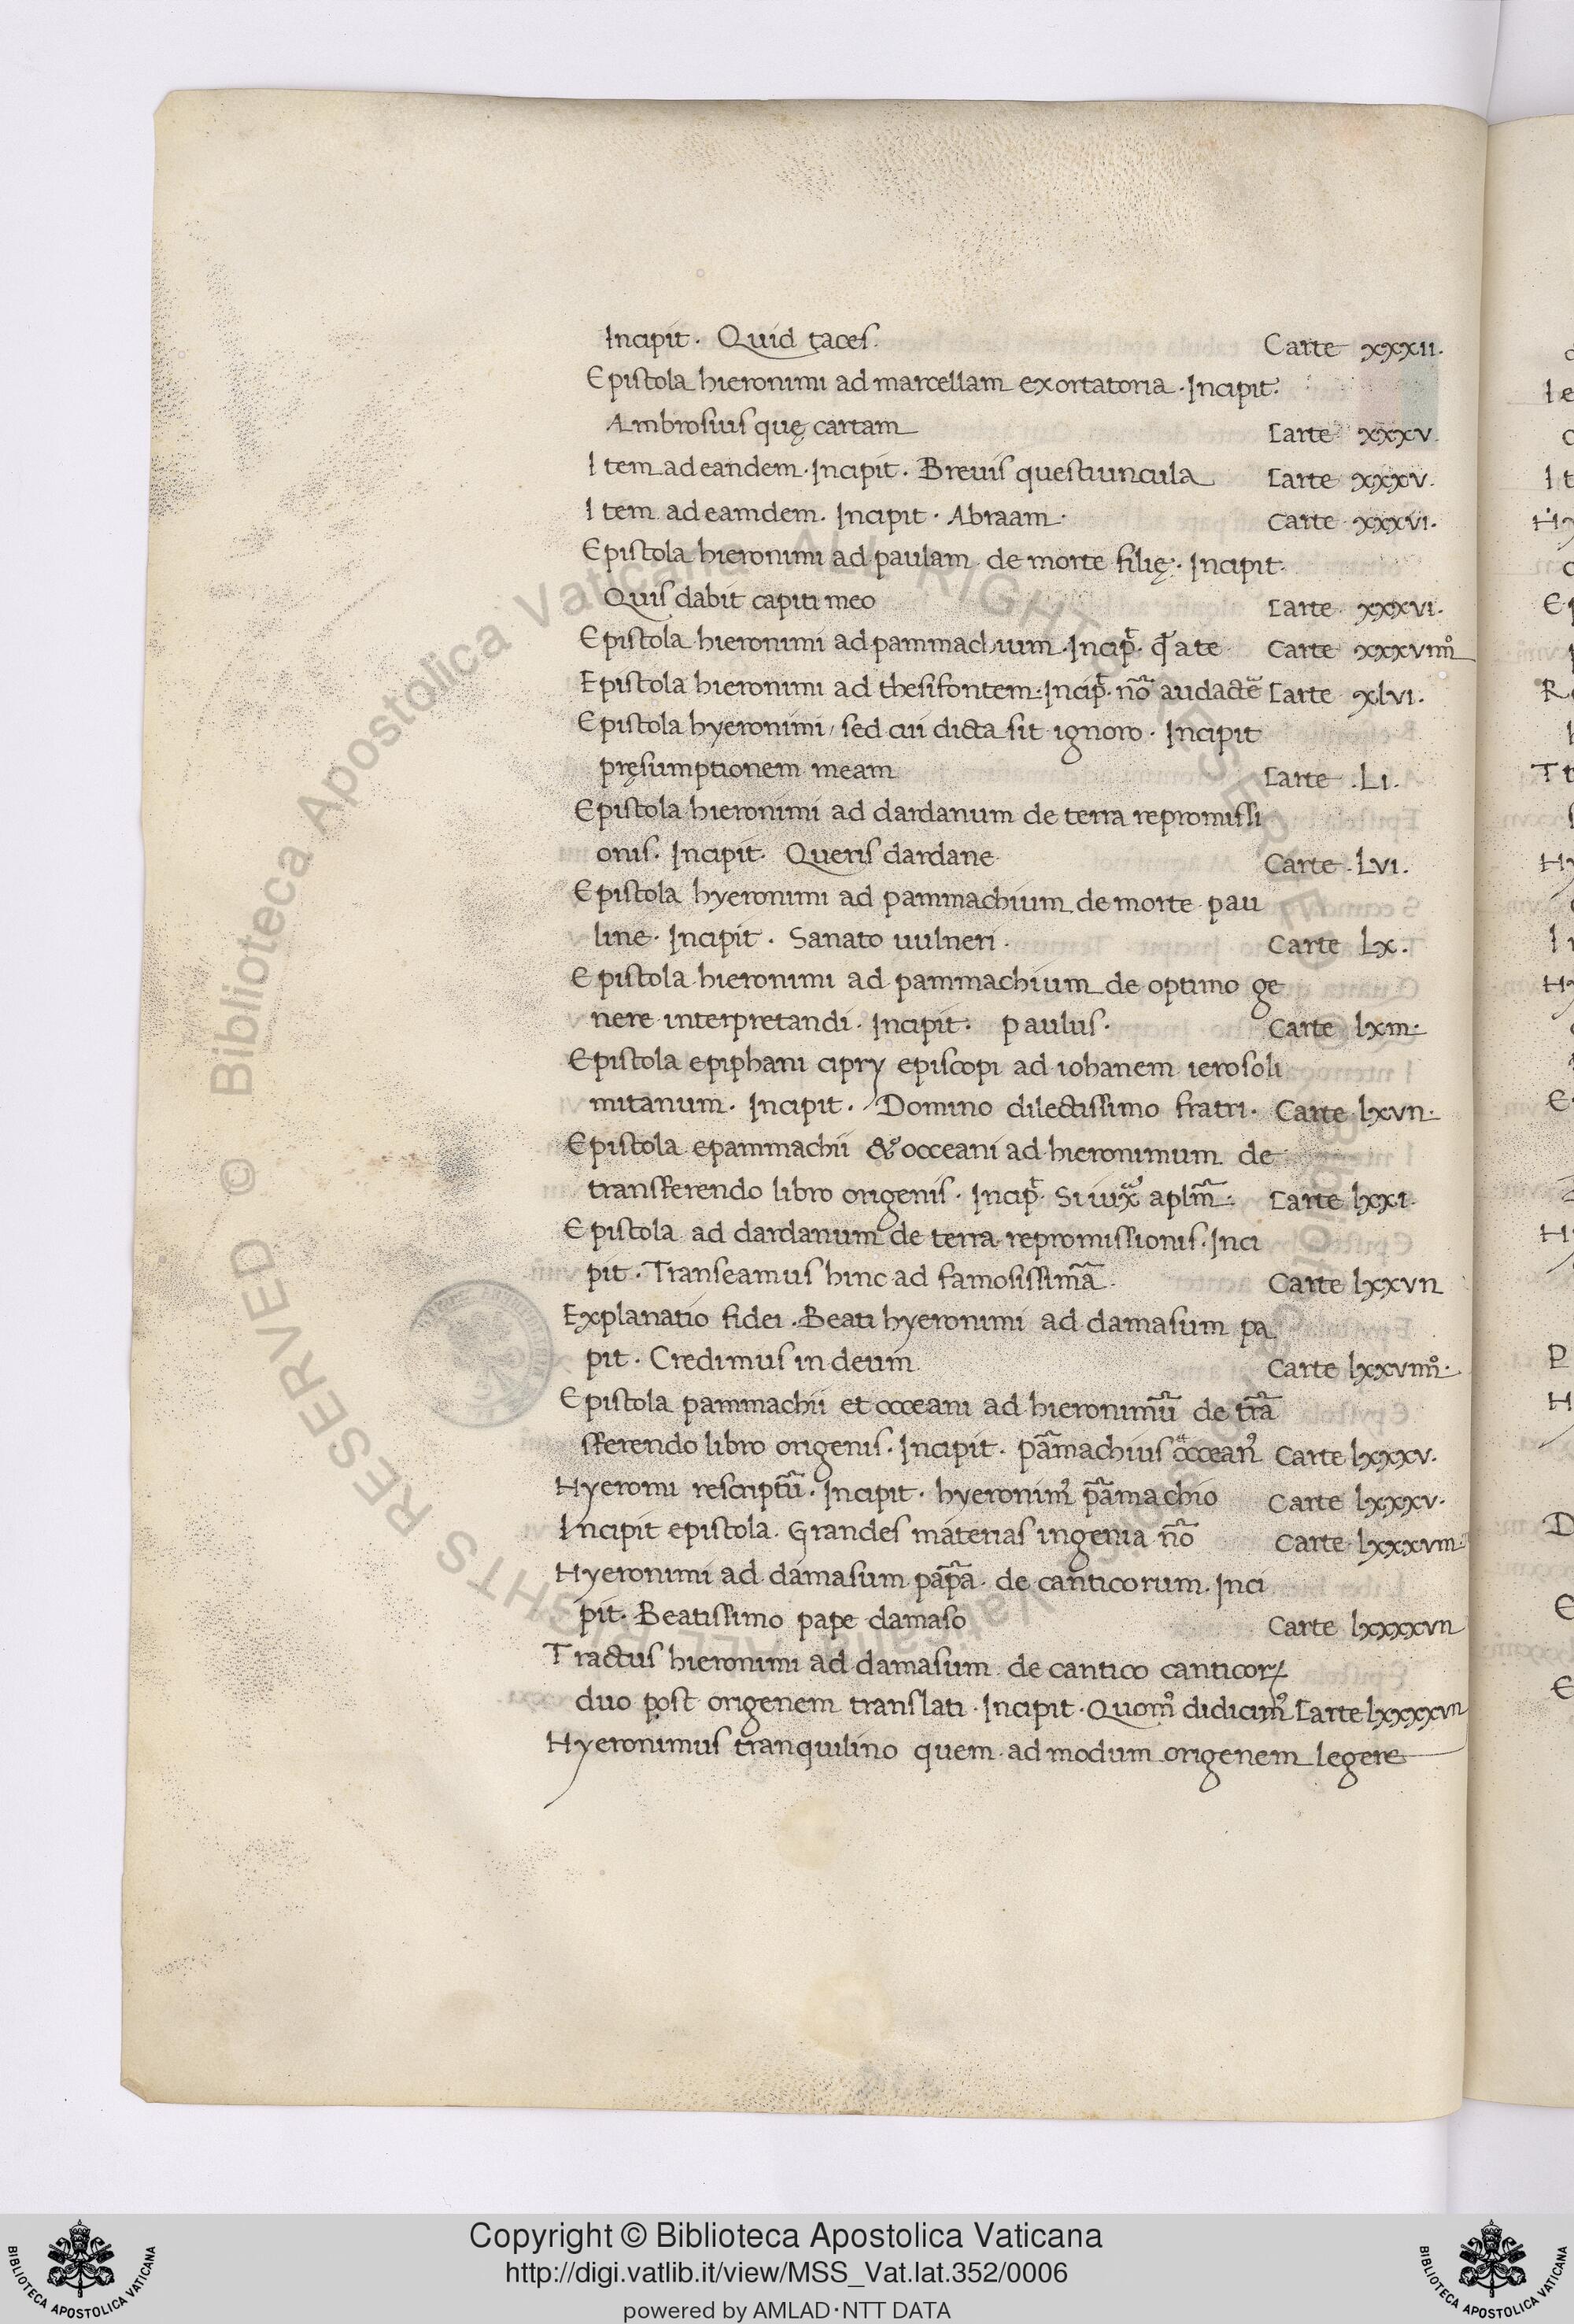 Incipit. Quid taces. Carte xxxii.
Epistola hieronimi ad marcellam exortatoria. Incipit.
Ambrosius quę cartam Carte xxxv.
Item ad eandem. Incipit. Breuis questiuncula Carte xxxv.
Item ad eamdem. Incipit. Abraam. Carte xxxvi.
Epistola hieronimi ad paulam de morte filię. Incipit.
Quis dabit capiti meo Carte xxxvi.
Epistola hieronimi ad pammachium. Incip̃. a te Carte xxxviiii°
Epistola hieronimi ad thesifontem. Incip̃. nõ audacte Carte xlvi.
Epistola hyeronimi, sed cui dicta sit ignoro. Incipit
pręsumptionem meam Carte .Li.
Epistola hieronimi ad dardanum de terra repromissi
onis. Incipit. Queris dardane Carte .Lvi.
Epistola hyeronimi ad pammachium de morte pau
line. Incipit. Sanato uulneri. Carte Lx.
Epistola hieronimi ad pammachium de optimo ge
nere interpretandi. Incipit. paulus. Carte lxiii.
Epistola epiphani cipry episcopi ad iohanem ierosoli
mitanum. Incipit. Domino dilectissimo fratri. Carte lxvii.
Epistola epammachii & occeani ad hieronimum de
transferendo libro origenis. Incip̃. Si iuxͣ aplm̃. Carte lxxi.
Epistola ad dardanum de terra repromissionis. Inci
pit. Transeamus hinc ad famosissimã. Carte lxxvii
Explanatio fidei. Beati hyeronimi ad damasum pa
pit. Credimus in deum Carte lxxviiii°.
Epistola pammachii et occeani ad hieronimũ de trã
sferendo libro origenis. Incipit. pãmachius occeanꝰ Carte lxxxv.
Hyeromi rescriptũ. Incipit. hyeronimꝰ pãmachio Carte lxxxv.
Incipit epistola. Grandes materias ingenia nõ Carte lxxxviii.
Hyeronimi ad damasum papã. de canticorum. Inci
pit. Beatissimo pape damaso Carte lxxxxvii
Tractus hieronimi ad damasum de cantico canticoꝝ
duo post origenem translati. Incipit. Quom° didicimꝰ Carte lxxxxvii
Hyeronimus tranquilino quem admodum origenem legere
© Biblioteca Apostolica Vaticana ALL RIGHTS RESERVED
Copyright © Biblioteca Apostolica Vaticana
http://digi.vatlib.it/view/MSS_Vat.lat.352/0006
powered by AMLAD·NTT DATA
BIBLIOTECA APOSTOLICA VATICANA
BIBLIOTECA APOSTOLICA VATICANA